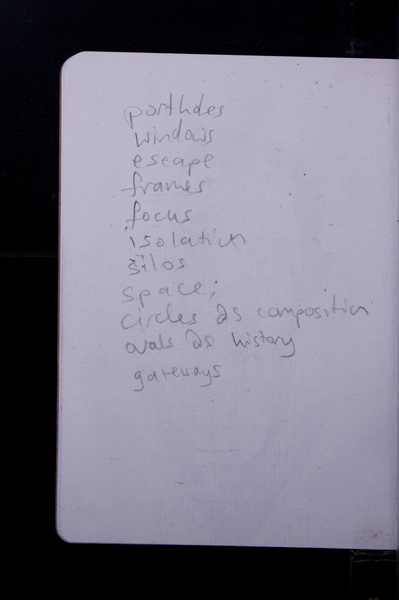 portholes
windows
escape
frames
focus
isolation
silos
space;
circles as composition
ovals as history
gateways